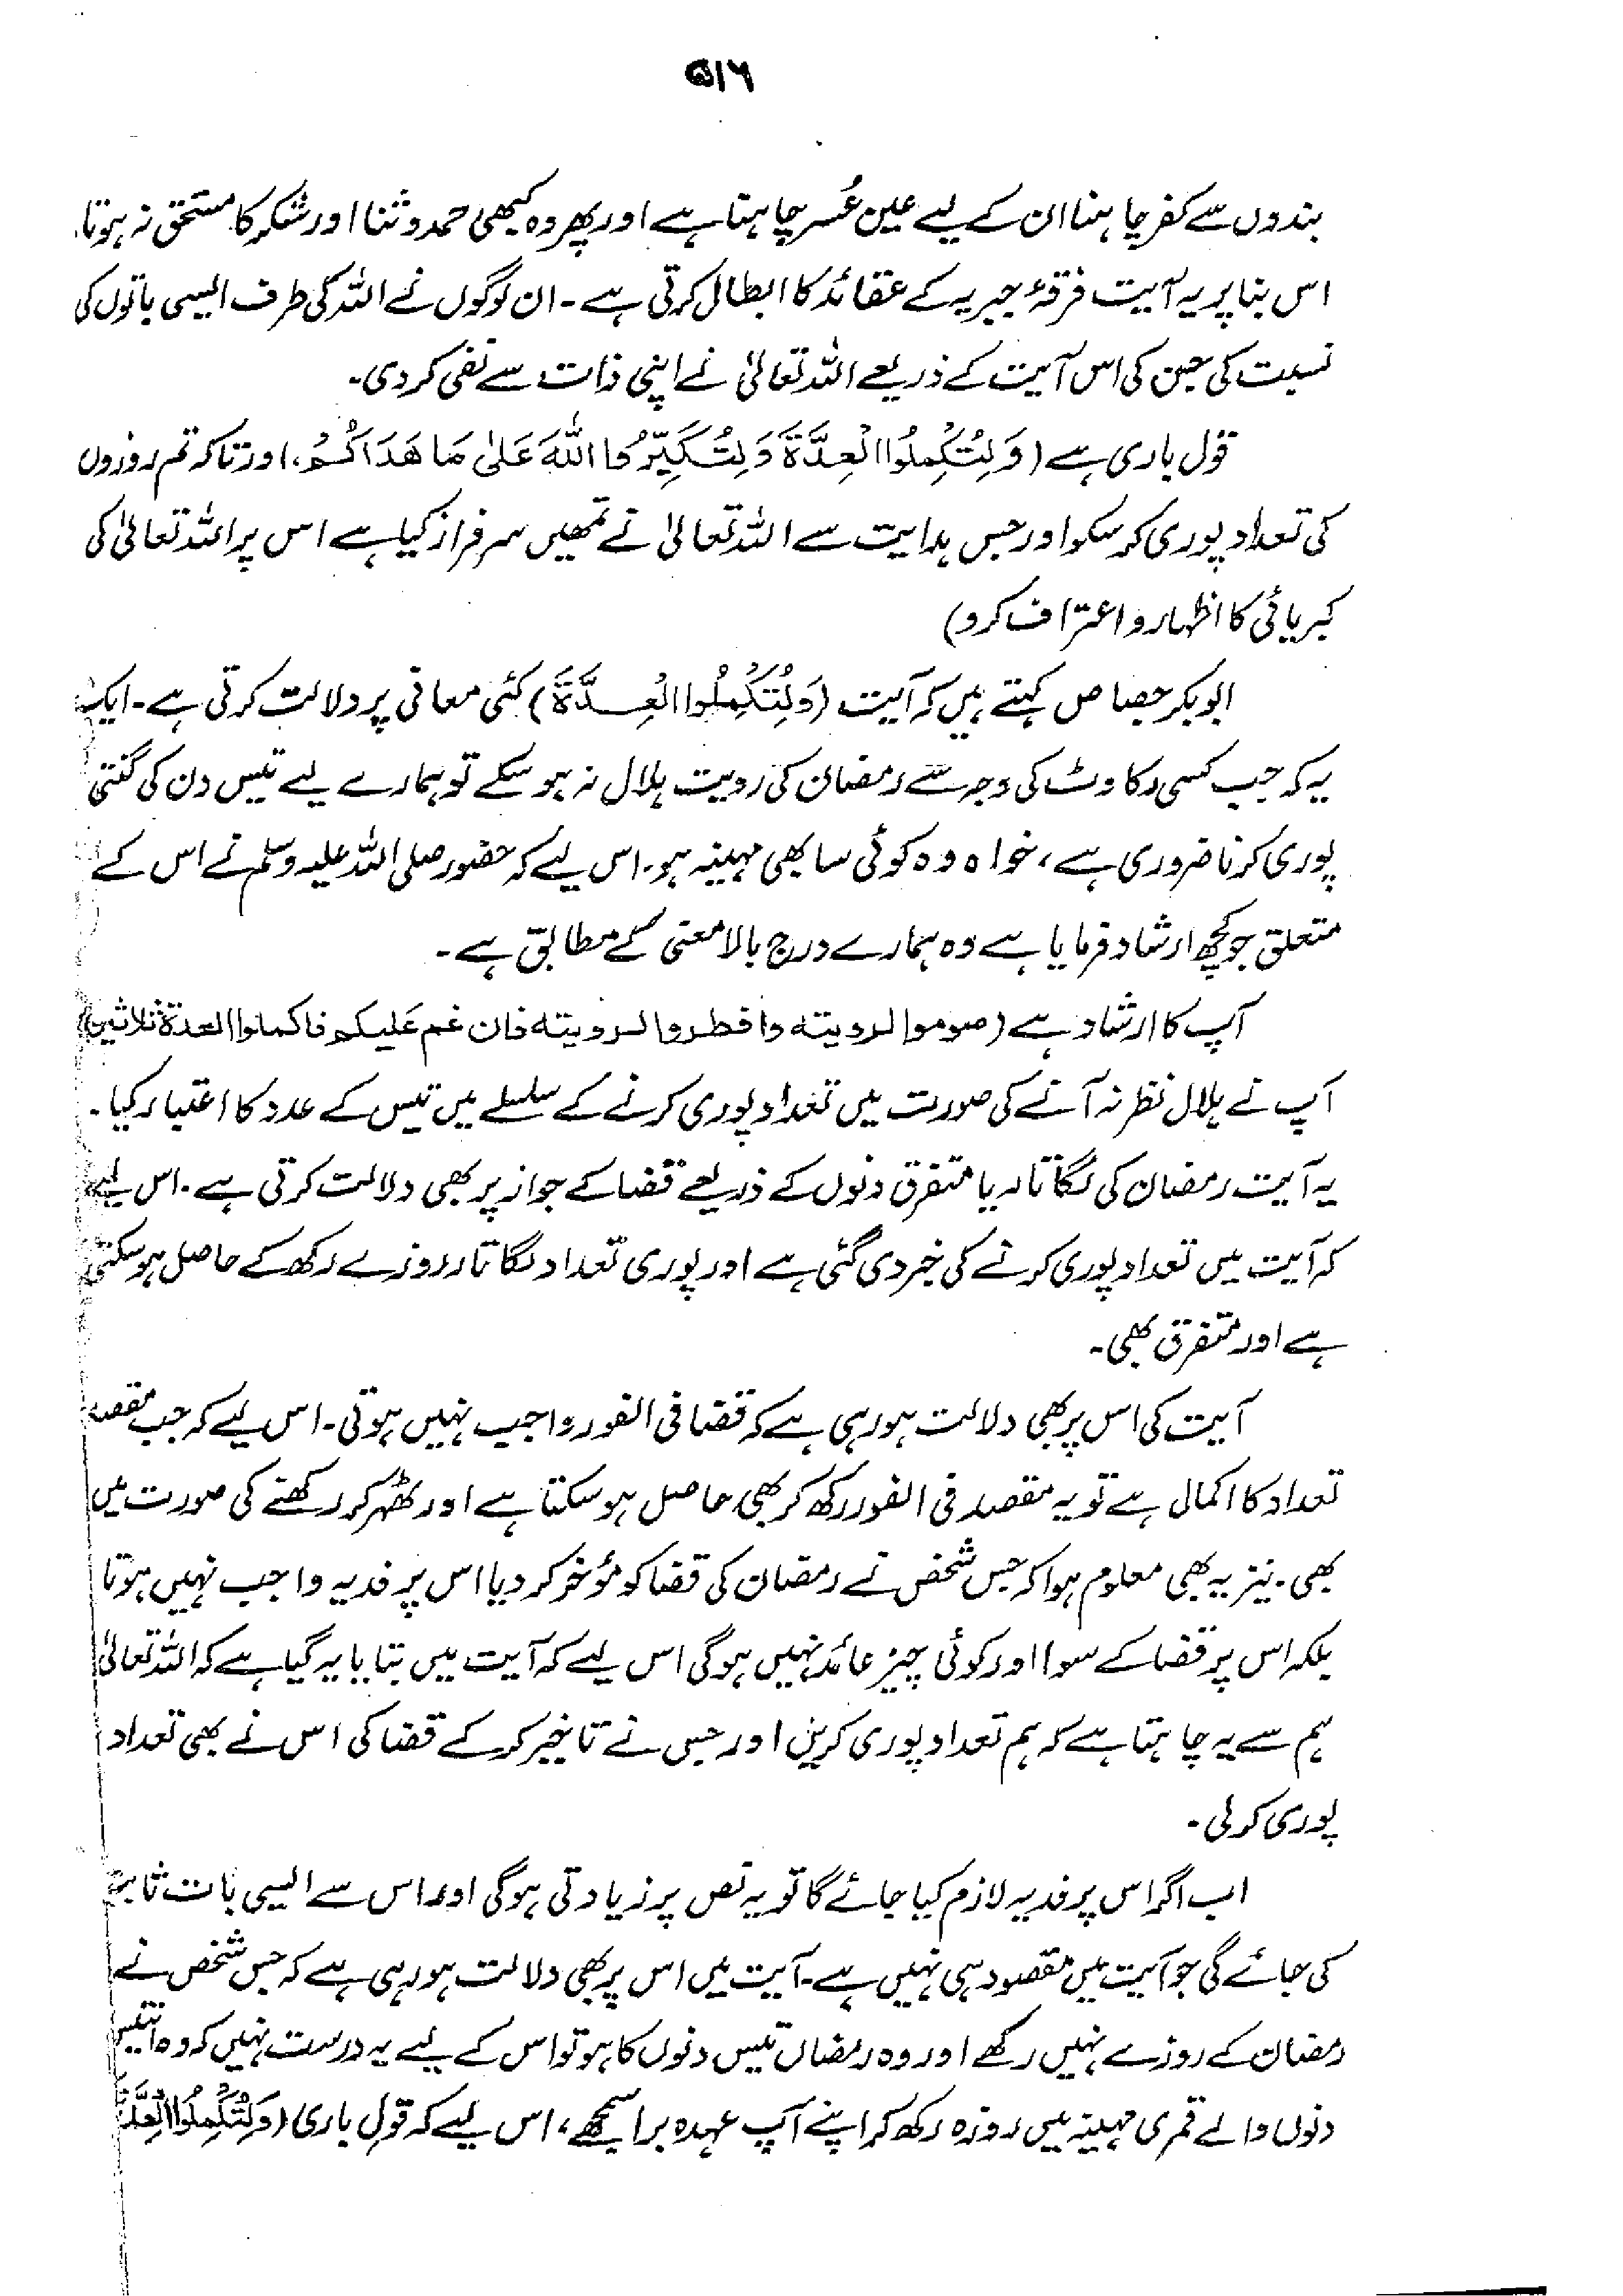 ۵۱۶
بندوں سے کفر چاہنا ان کے لیے عین عُسر چاہتا ہے اور پھر وہ کبھی حمد و ثنا اور شکر کا مستحق نہ ہوتا.
اس بنا پر یہ آیت فرقۂ جبریہ کے عقائد کا ابطال کرتی ہے ۔ ان لوگوں نے اللہ کی طرف ایسی باتوں کی
نسبت کی جن کی اس آیت کے ذریعے اللہ تعالیٰ نے اپنی ذات سے نفی کر دی ۔
قول باری ہے (وَلِتُكْمِلُوا الْعِدَّةَ وَلِتُكَبِّرُوا اللّٰهَ عَلىٰ مَا هَدَاكُمْ، اور تاکہ تم روزوں
کی تعداد پوری کر سکو اور جس ہدایت سے اللہ تعالیٰ نے تمھیں سرفراز کیا ہے اس پر اللہ تعالیٰ کی
کبریائی کا اظہار و اعتراف کرو)
ابوبکر جصاص کہتے ہیں کہ آیت (وَلِتُكْمِلُوا الْعِدَّةَ) کئی معانی پر دلالت کرتی ہے ۔ ایک
یہ کہ جب کسی رکاوٹ کی وجہ سے رمضان کی رویت ہلال نہ ہو سکے تو ہمارے لیے تیس دن کی گنتی
پوری کرنا ضروری ہے ، خواہ وہ کوئی سا بھی مہینہ ہو ۔ اس لیے کہ حضور صلی اللہ علیہ وسلم نے اس کے
متعلق جو کچھ ارشاد فرمایا ہے وہ ہمارے درج بالا معنی کے مطابق ہے ۔
آپ کا ارشاد ہے (صوموا لرویته وافطروا لرویته فان غم علیکم فاکملوا العدة ثلاثین)
آپ نے ہلال نظر نہ آنے کی صورت میں تعداد پوری کرنے کے سلسلے میں تیس کے عدد کا اعتبار کیا ۔
یہ آیت رمضان کی لگاتار یا متفرق دنوں کے ذریعے قضا کے جواز پر بھی دلالت کرتی ہے ۔ اس لیے
کہ آیت میں تعداد پوری کرنے کی خبر دی گئی ہے اور پوری تعداد لگاتار روزے رکھ کے حاصل ہو سکتی
ہے اور متفرق بھی ۔
آیت کی اس پر بھی دلالت ہو رہی ہے کہ قضا فی الفور واجب نہیں ہوتی ۔ اس لیے کہ جب مقصد
تعداد کا اکمال ہے تو یہ مقصد فی الفور رکھ کر بھی حاصل ہو سکتا ہے اور ٹھہر کر رکھنے کی صورت میں
بھی ۔ نیز یہ بھی معلوم ہوا کہ جس شخص نے رمضان کی قضا کو مؤخر کر دیا اس پر فدیہ واجب نہیں ہوتا
بلکہ اس پر قضا کے سوا اور کوئی چیز عائد نہیں ہو گی اس لیے کہ آیت میں بتایا یہ گیا ہے کہ اللہ تعالیٰ
ہم سے یہ چاہتا ہے کہ ہم تعداد پوری کریں اور جس نے تاخیر کر کے قضا کی اس نے بھی تعداد
پوری کر لی ۔
اب اگر اس پر فدیہ لازم کیا جائے گا تو یہ نص پر زیادتی ہو گی اور اس سے ایسی بات ثابت
کی جائے گی جو آیت میں مقصود ہی نہیں ہے ۔ آیت میں اس پر بھی دلالت ہو رہی ہے کہ جس شخص نے
رمضان کے روزے نہیں رکھے اور وہ رمضان تیس دنوں کا ہو تو اس کے لیے یہ درست نہیں کہ وہ انتیس
دنوں والے قمری مہینہ میں روزہ رکھ کر اپنے آپ عہدہ برا سمجھے ، اس لیے کہ قولِ باری (وَلِتُكْمِلُوا الْعِدَّةَ